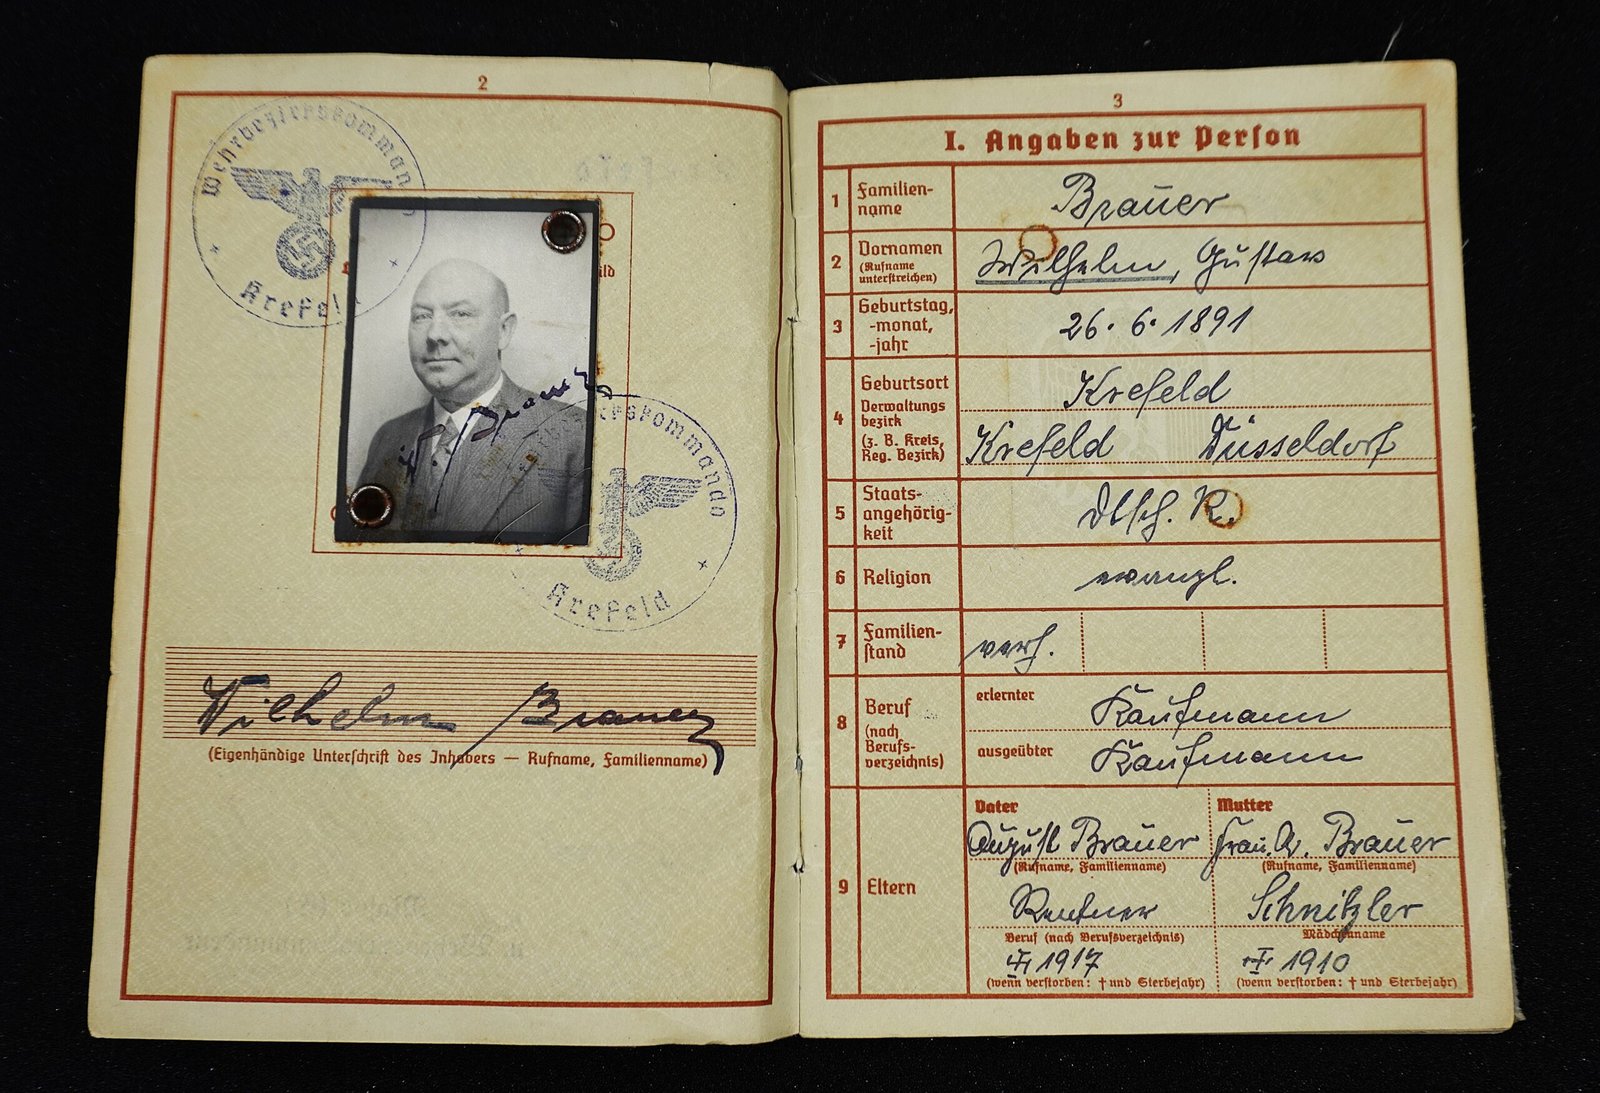 2
Wehrbezirkskomman
Krefeld
W. Brauer
Wehrbezirkskommando
Krefeld
Wilhelm Brauer
(Eigenhändige Unterschrift des Inhabers — Rufname, Familienname)
3
I. Angaben zur Person
1 Familien-
name
Brauer
2 Vornamen
(Rufname
unterstreichen)
Wilhelm, Gustav
3 Geburtstag,
-monat,
-jahr
26. 6. 1891
4 Geburtsort
Verwaltungs
bezirk
(z. B. Kreis,
Reg. Bezirk)
Krefeld
Krefeld Düsseldorf
5 Staats-
angehörig-
keit
Dtsch. R.
6 Religion
evangl.
7 Familien-
stand
verh.
8 Beruf
(nach
Berufs-
verzeichnis)
erlernter
Kaufmann
ausgeübter
Kaufmann
9 Eltern
Vater
August Brauer
(Rufname, Familienname)
Rentner
Beruf (nach Berufsverzeichnis)
† 1917
(wenn verstorben: † und Sterbejahr)
Mutter
Brauer
(Rufname, Familienname)
Schnitzler
Mädchenname
† 1910
(wenn verstorben: † und Sterbejahr)